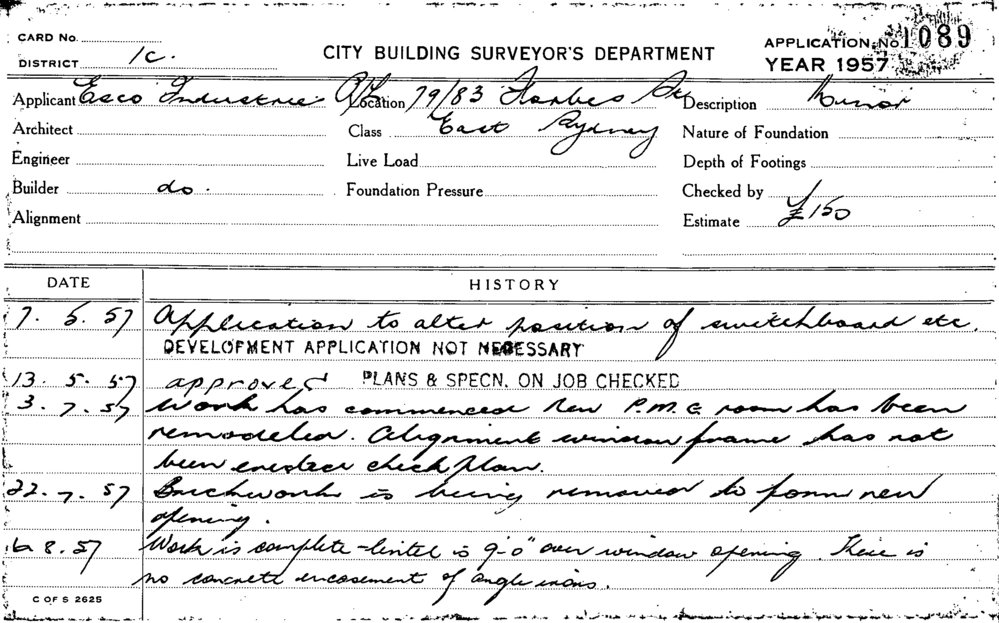 CARD No.
DISTRICT 1C.
CITY BUILDING SURVEYOR'S DEPARTMENT
APPLICATION No. 1089
YEAR 1957
Applicant Esco Industries P/L Location 79/83 Forbes St Description Minor
Architect Class East Sydney Nature of Foundation
Engineer Live Load Depth of Footings
Builder do. Foundation Pressure Checked by
Alignment Estimate £150
DATE HISTORY
7. 5. 57 Application to alter position of switchboard etc.
DEVELOPMENT APPLICATION NOT NECESSARY
13. 5. 57 approved PLANS & SPECN. ON JOB CHECKED
3. 7. 57 Work has commenced New P.M.G room has been
remodeled. Alignment window frame has not
been erected check plan.
22. 7. 57 Brickwork is being removed to form new
opening.
6 8. 57 Work is complete - lintel is 9'-0" over window opening. There is
no concrete encasement of angle irons.
C OF S 2625